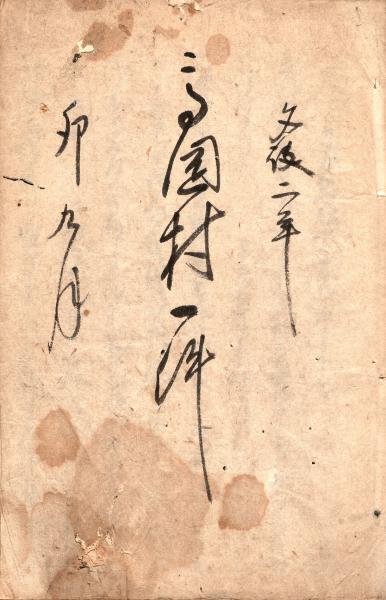 文政二年
高岡村一件
卯九月